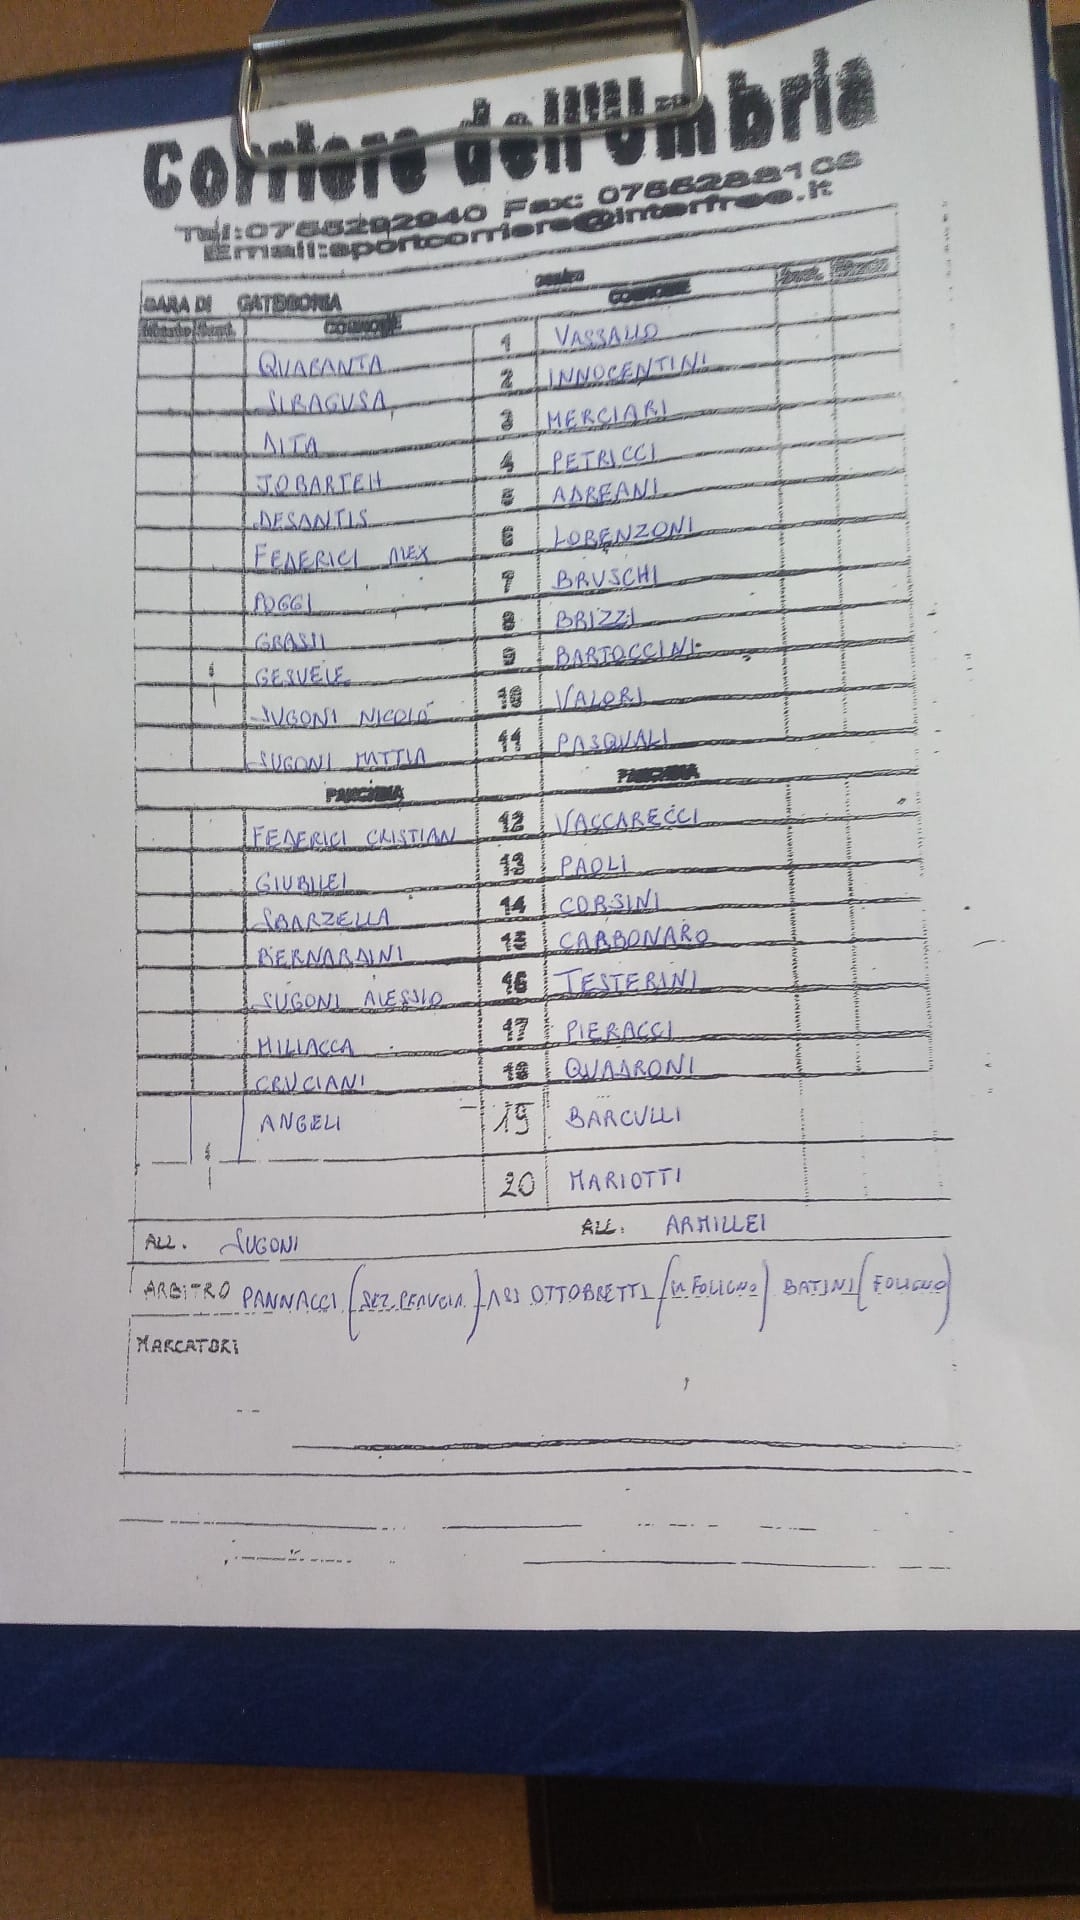 Corriere dell'Umbria
Tel:0755292940 Fax: 0755288108
Email:sportcorriere@interfree.it
GARA DI CATEGORIA
COGNOME COGNOME
QUARANTA 1 VASSALLO
SIRAGUSA 2 INNOCENTINI
AITA 3 MERCIARI
JOBARTEH 4 PETRICCI
DESANTIS 5 ADREANI
FEDERICI ALEX 6 LORENZONI
POGGI 7 BRUSCHI
GRASSI 8 BRIZZI
GESUELE 9 BARTOCCINI
SUGONI NICOLÓ 10 VALORI
SUGONI MATTIA 11 PASQUALI
PANCHINA PANCHINA
FEDERICI CRISTIAN 12 VACCARECCI
GIUBILEI 13 PAOLI
SBARZELLA 14 CORSINI
BERNARDINI 15 CARBONARO
SUGONI ALESSIO 16 TESTERINI
MILIACCA 17 PIERACCI
CRUCIANI 18 QUADRONI
ANGELI 19 BARCULLI
20 MARIOTTI
ALL. SUGONI ALL. ARMILLEI
ARBITRO PANNACCI (SEZ. PERUGIA) ASS OTTOBRETTI (FOLIGNO) BATINI (FOLIGNO)
MARCATORI